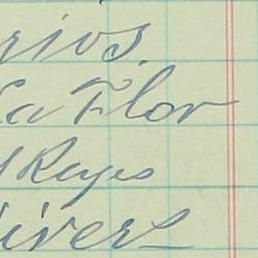 rios,
La Flor
l Reyes
ivers